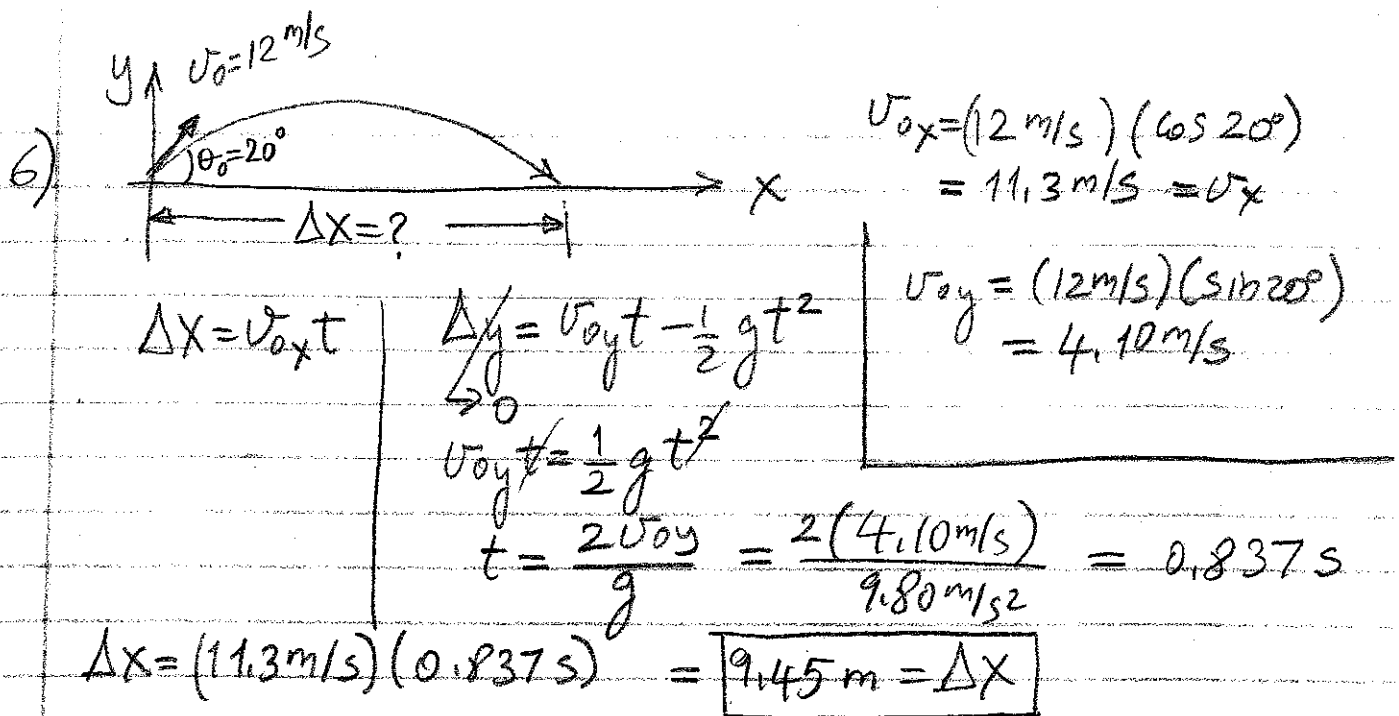 y
v₀=12 m/s
6)
θ₀=20°
x
Δx=?
v₀ₓ=(12 m/s)(cos 20°)
= 11.3 m/s = vₓ
v₀y = (12m/s)(sin 20°)
= 4.10 m/s
Δx = v₀ₓt
Δy = v₀yt - ½ gt²
→ 0
v₀yt = ½ gt²
t = 2v₀y/g = 2(4.10 m/s)/9.80 m/s² = 0.837 s
Δx = (11.3 m/s)(0.837 s) = 9.45 m = Δx